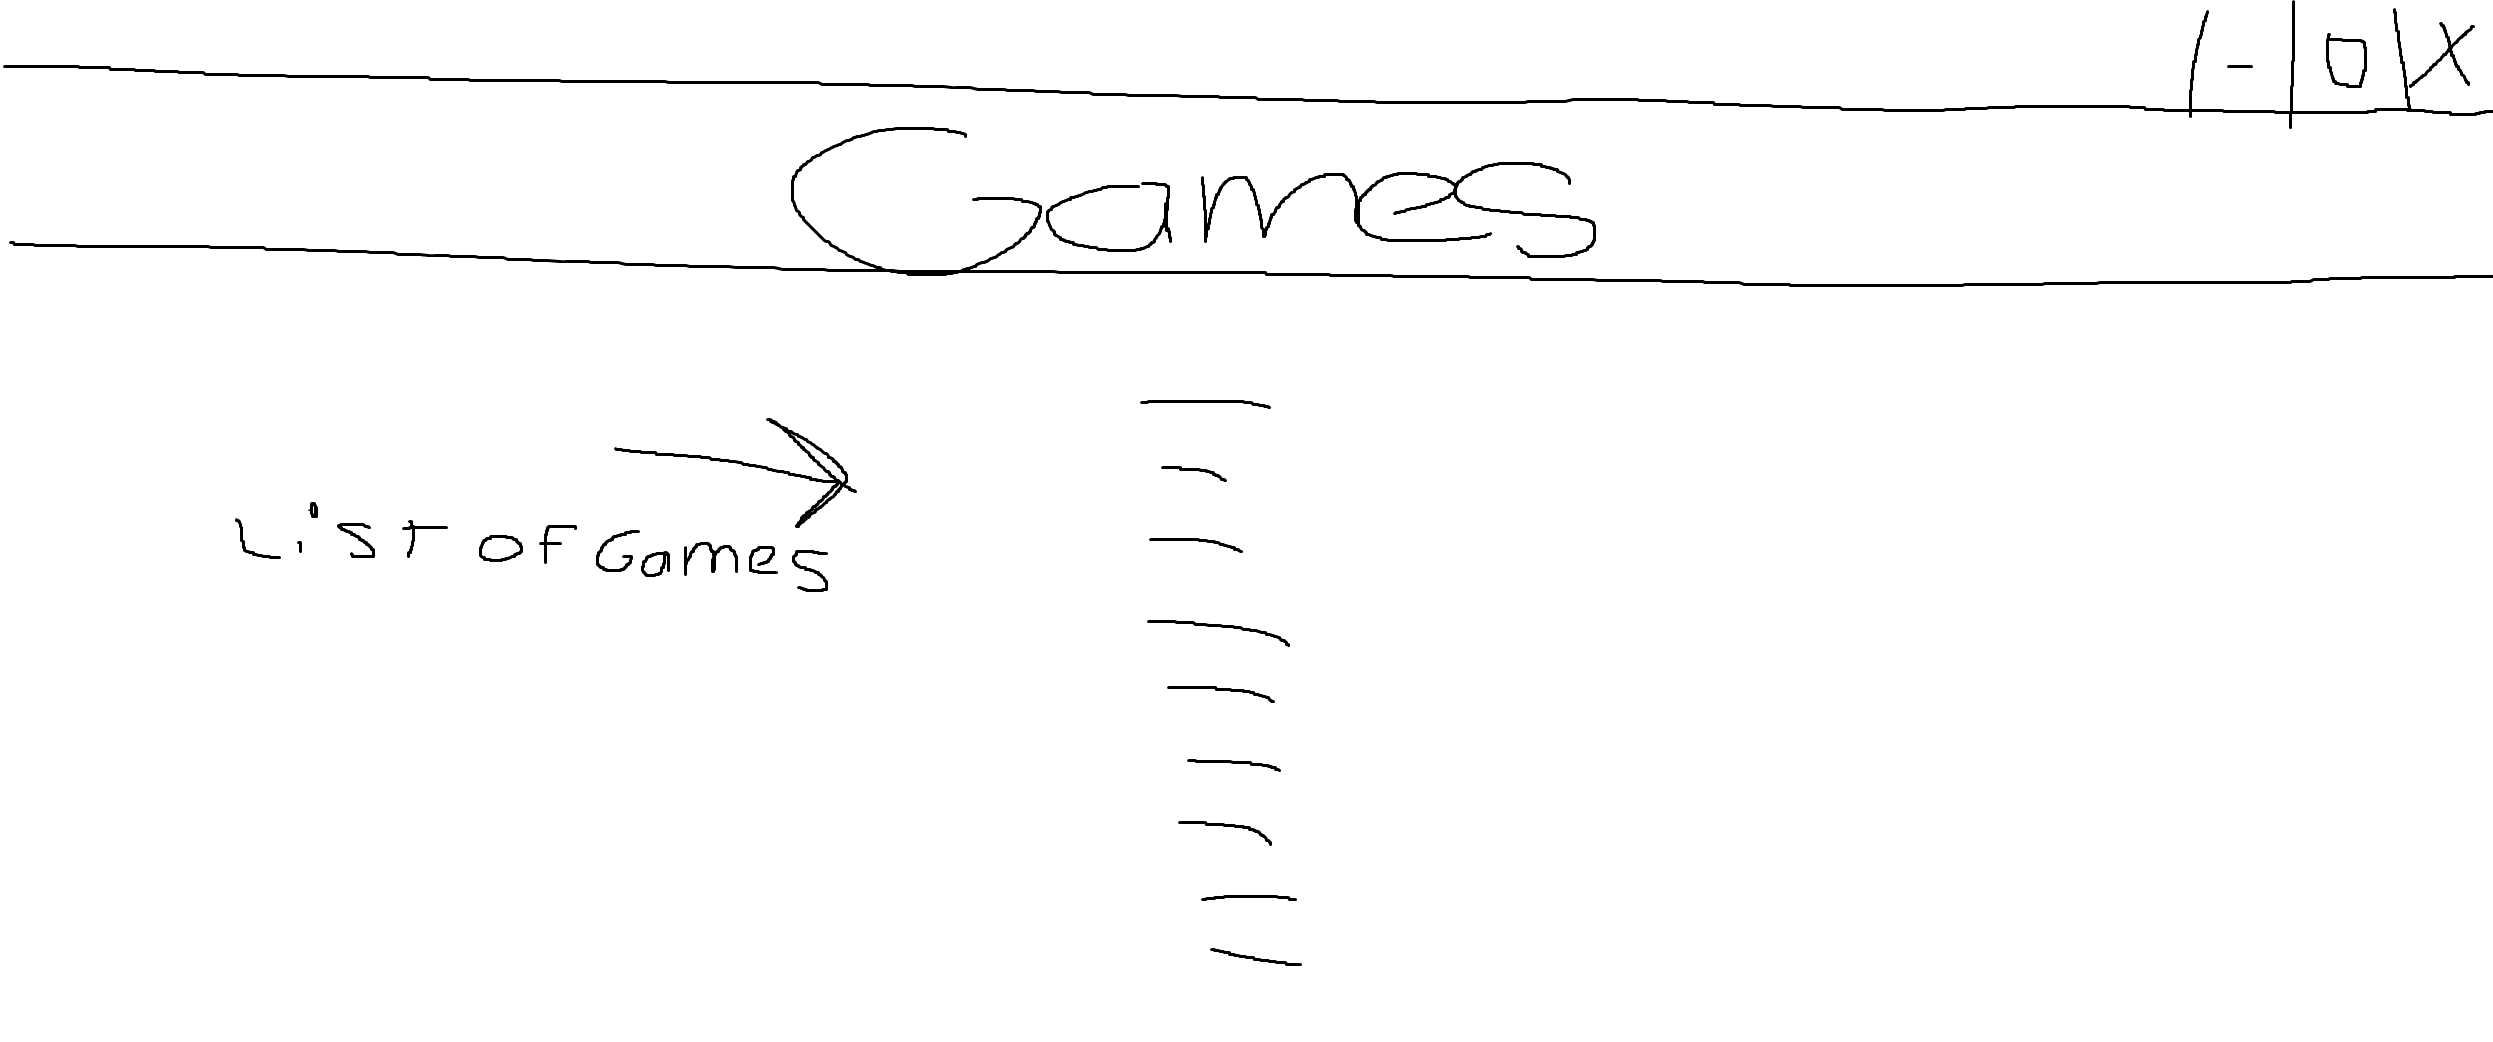 Games
List of Games